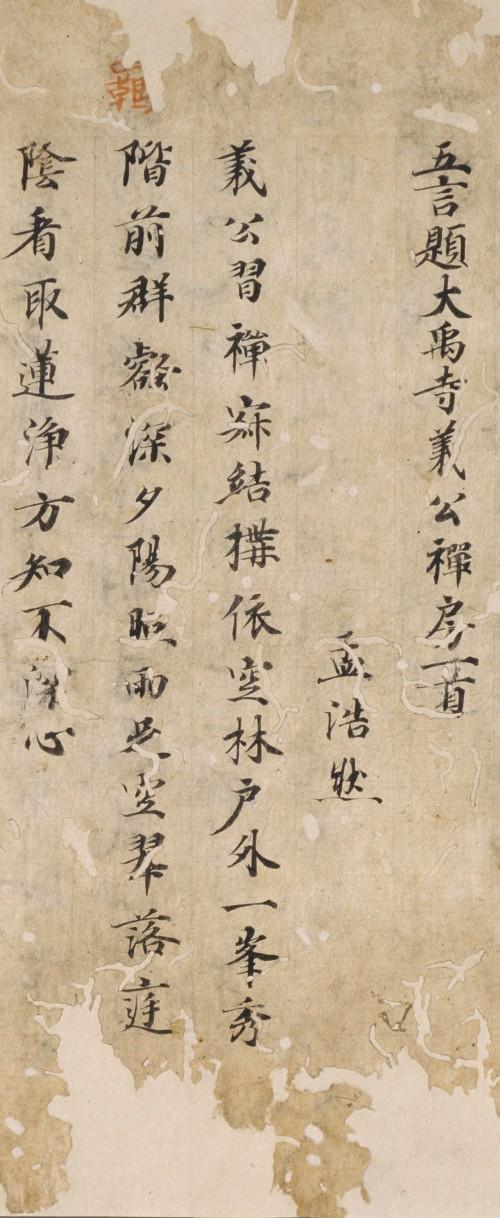 五言題大禹寺義公禪房一首
孟浩然
義公習禪寂結搆依空林戶外一峯秀
階前群壑深夕陽照雨足空翠落庭
陰看取蓮淨方知不染心